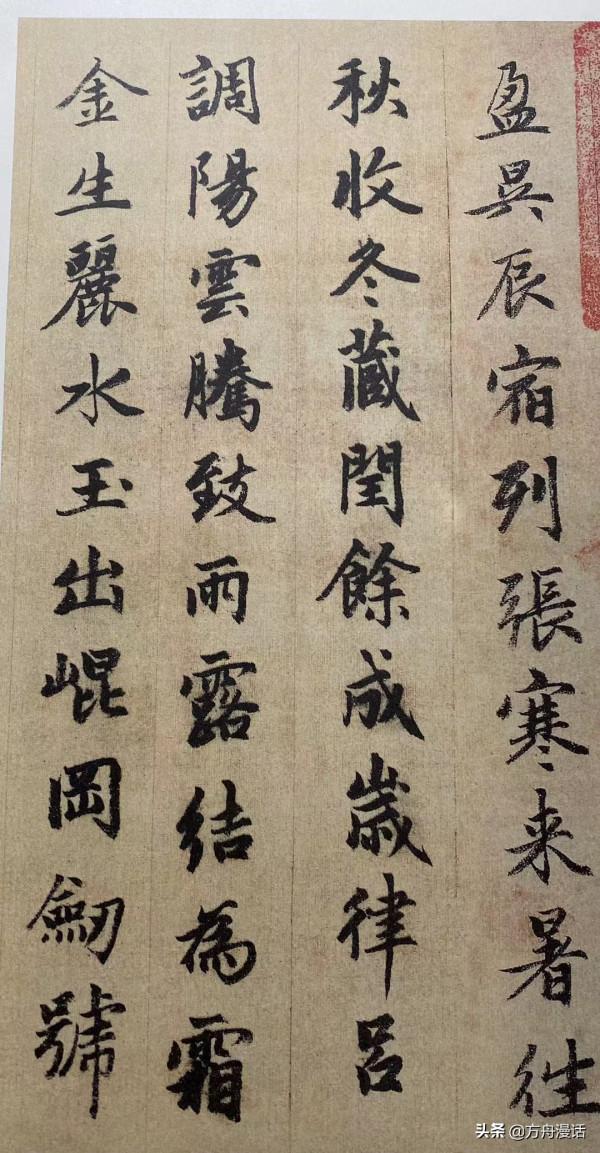 盈昃辰宿列張寒来暑徃
秋收冬蔵閏餘成歲律呂
調陽雲騰致雨露結為霜
金生麗水玉出崐岡劒號
头条 @方舟漫话